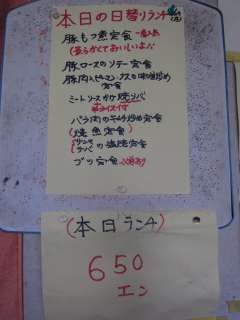 本日の日替りランチ
豚もつ煮定食 一番人気
(柔らかくておいしいよ♪)
豚ロースのソテー定食
豚肉とピーマン、ナスの味噌炒め
定食
ミートソースかけ焼ソバ
半ライス付
バラ肉のキムチ炒め定食
(焼魚定食)
サンマ
サバ の塩焼定食
ブツ定食
(本日ランチ)
650
エン